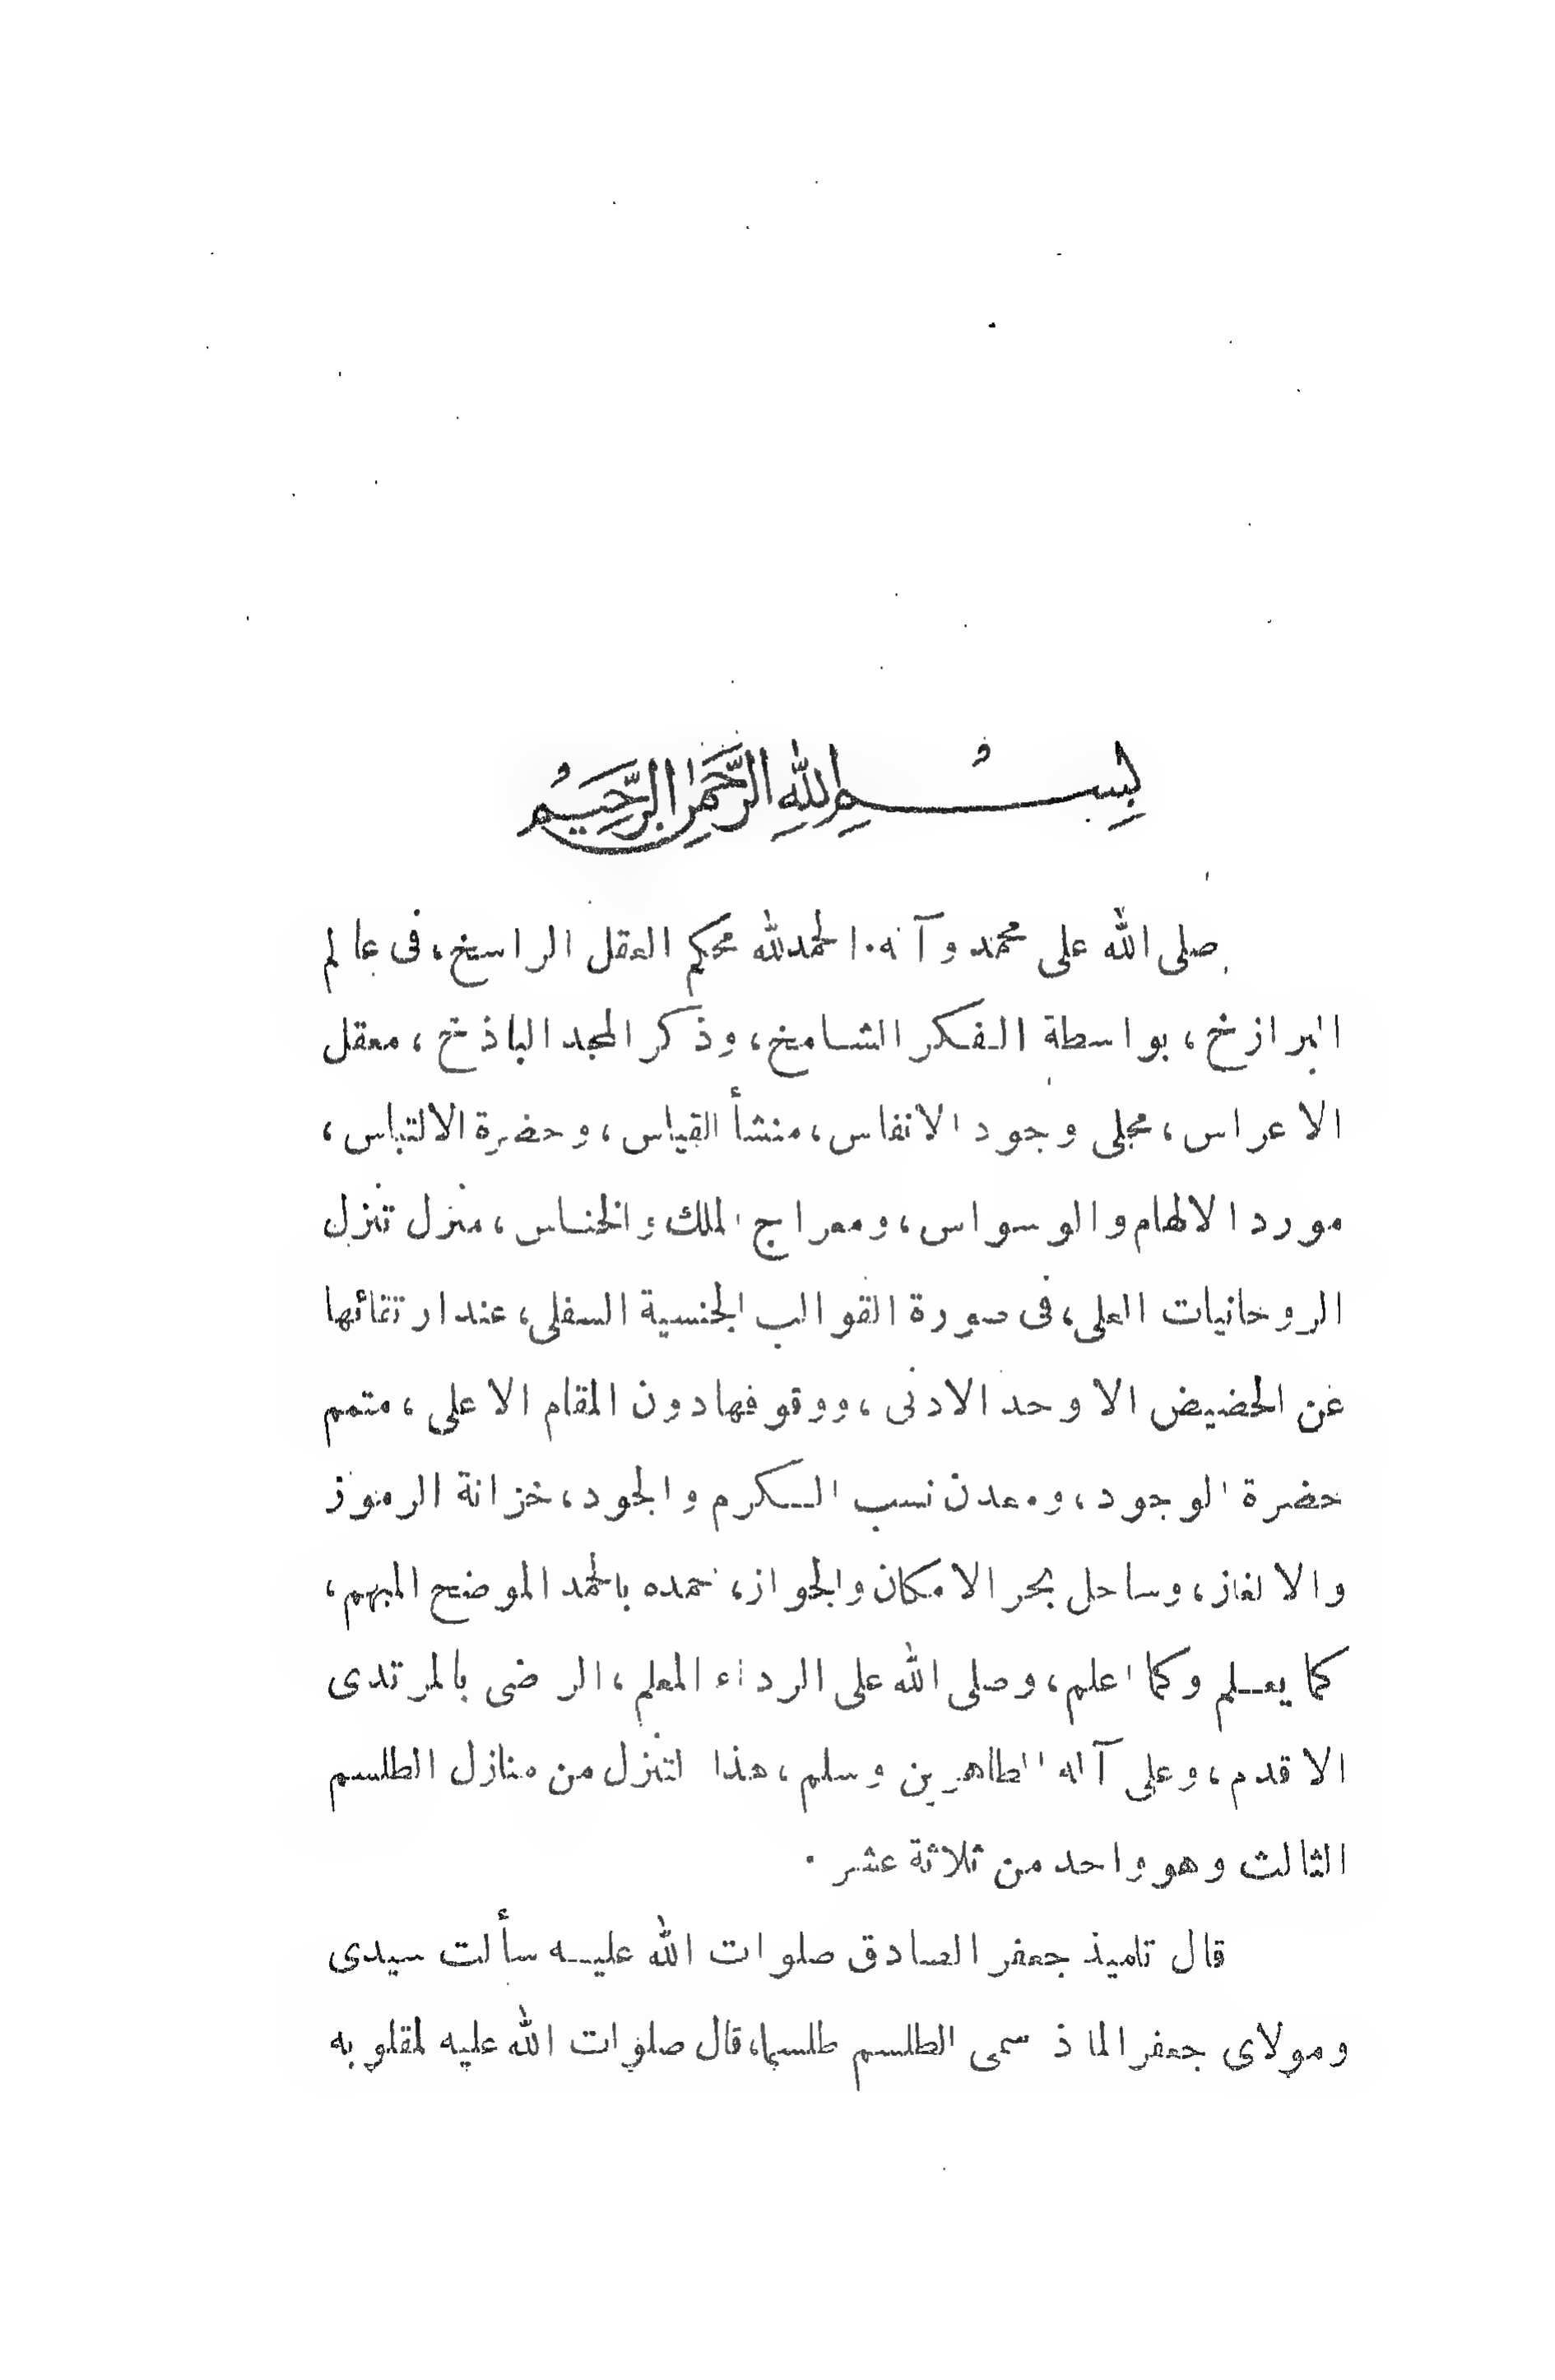 بِسْمِ اللهِ الرَّحْمٰنِ الرَّحِيْمِ
صلى الله على محمد وآله. الحمدلله محكم العقل الراسخ، فى عالم
البرازخ، بواسطة الفكر الشامخ، وذكر المجد الباذخ، معقل
الاعراس، مجلى وجود الانفاس، منشأ القياس، وحضرة الالتباس،
مورد الالهام والوسواس، ومعراج الملك والخناس، منزل تنزل
الروحانيات العلى، فى صورة القوالب الجنسية السفلى، عند ارتقائها
عن الحضيض الاوحد الادنى، ووقوفها دون المقام الاعلى، متمم
حضرة الوجود، ومعدن نسب الكرم والجود، خزانة الرموز
والالغاز، وساحل بحر الامكان والجواز، نحمده بالحمد الموضح المبهم،
كما يعلم وكما اعلم، وصلى الله على الرداء المعلم، الرضى بالمرتدى
الاقدم، وعلى آله الطاهرين وسلم، هذا لتنزل من منازل الطلسم
الثالث وهو واحد من ثلاثة عشر.
قال تلميذ جعفر الصادق صلوات الله عليه سألت سيدى
ومولاى جعفر الماذ سمى الطلسم طلسما، قال صلوات الله عليه لمقلوبه